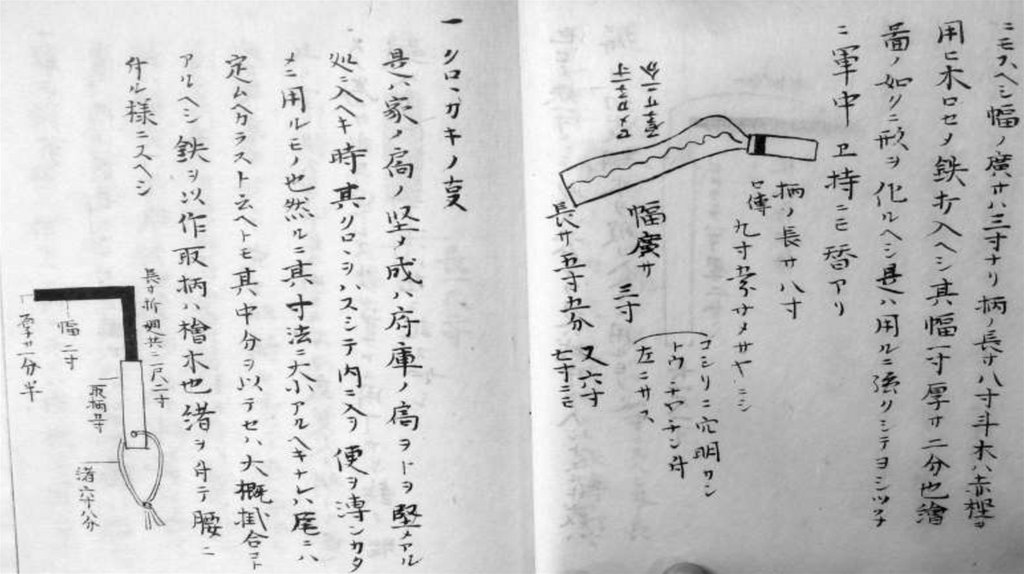 ニモスヘシ幅ノ廣サハ三寸ナリ柄ノ長サ八寸斗木ハ赤樫ヲ
用ヒ木口セメ鉄打入ヘシ其幅一寸厚サ二分也繪
圖ノ如クニ形ヲ化ルヘシ是ハ用ルニ強クシテヨシ
ニ軍中ヱ持ニモ替アリ
柄ノ長サ八寸
口傳
九寸
サメサヤニシ
コシリニ穴明ケ
左ニサス
幅廣サ 三寸
長サ 五寸五分 又六寸
七寸ニモ
一 クロヽカキノ事
是ハ家ノ扃ノ堅ノ成ハ府庫ノ扃ヲトヲ堅メアル
処ニ入ヘキ時其クロヽヲハスシテ内ニ入ヲ便ヲ溥ンカタ
メニ用ルモノ也然ルニ其寸法ニ大小アルヘキナレハ尾ニハ
定ムヘカラスト云ヘトモ其中分ヲ以テセハ大概掛合コト
アルヘシ鉄ヲ以作取柄ハ檜木也緒ヲ付テ腰ニ
付ル様ニスヘシ
長サ折廻共ニ二尺二寸
幅二寸
厚サ一分半
取柄五寸
緒六寸八分